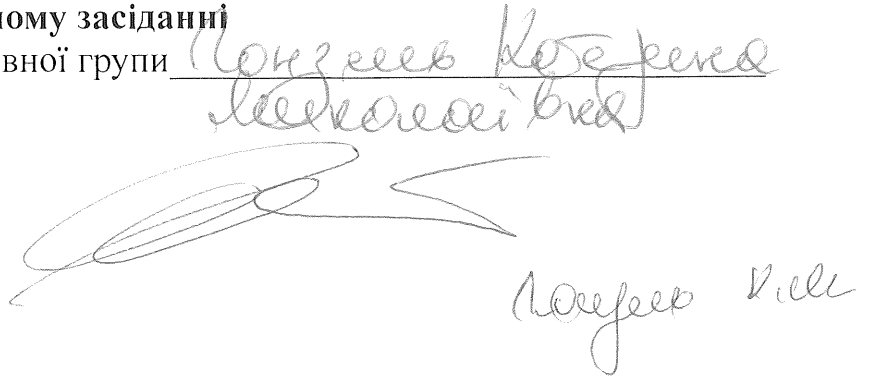 ному засіданні
вної групи Гонзель Катерина
Миколаївна
Гонзель К.М